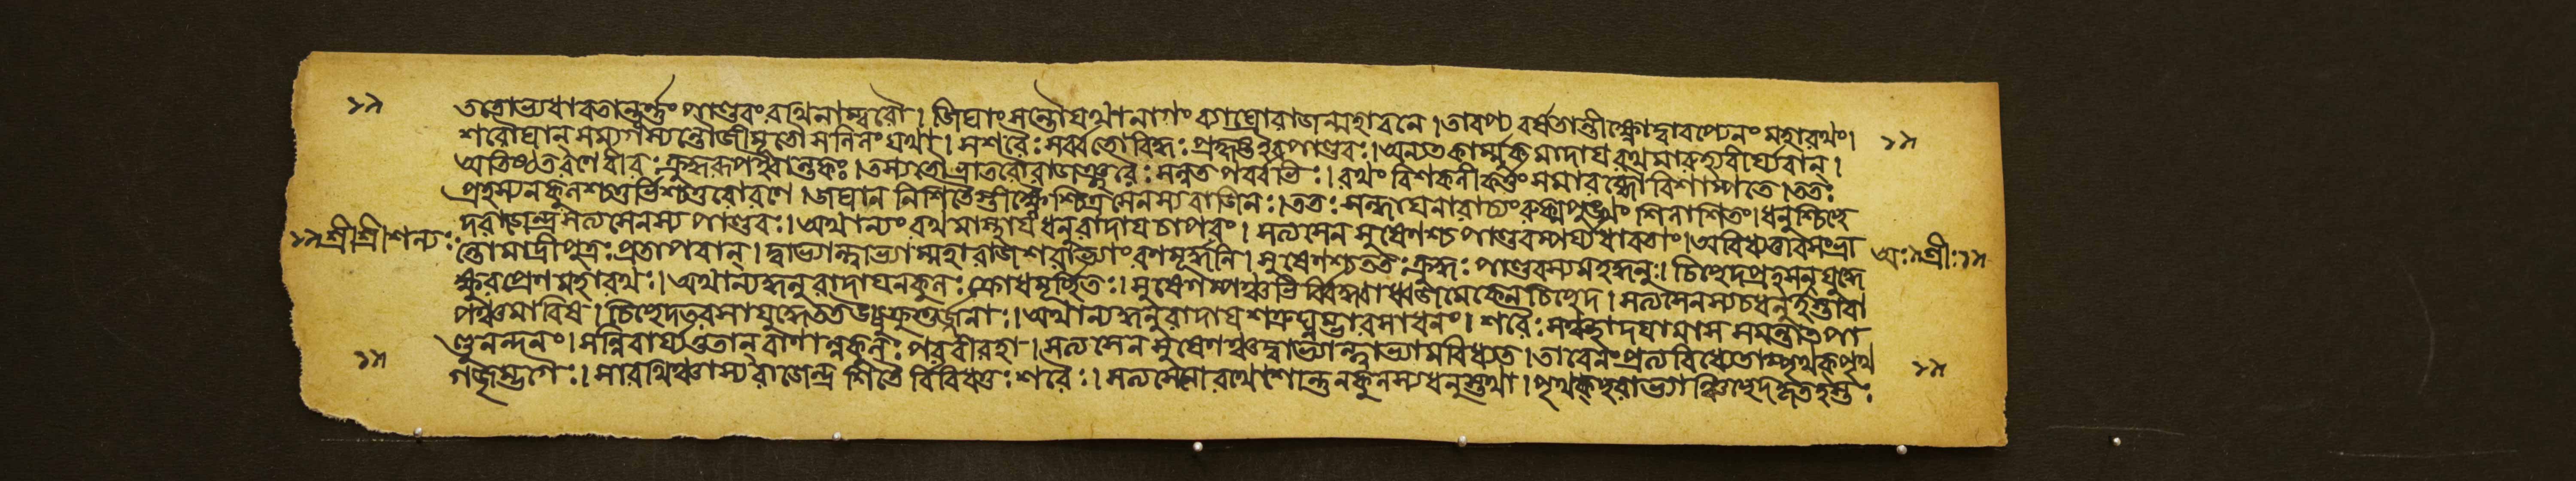 ততোভ্যধাবতান্তূর্ণ্ণং পাণ্ডবং রথিনাম্বরৌ। জিঘাংসন্তৌ যথা নাগং ব্যাঘ্রো রাজন্মহাবনে। তাবপ্য বর্ষতান্তীক্ষ্ণৌ দ্বাবপ্যেনং মহারথং।
শরৌঘান্ সম্যগস্যন্তৌ জীমূতৌ সলিলং যথা। স শরৈঃ সর্ব্বতো বিদ্ধঃ প্রহৃষ্ট ইব পাণ্ডবঃ। অন্যত কার্ম্মুকমাদায় রথমারুহ্য বীর্য্যবান্।
অতিষ্ঠত রণে বীরঃ ক্রুদ্ধরূপ ইবান্তকঃ। তস্য তৌ ভ্রাতরৌ রাজঞ্ছরৈঃ সন্নত পর্ব্বভিঃ। রথং বিশকলীকর্ত্তুং সমারব্ধৌ বিশাম্পতে। ততঃ
প্রহস্য নকুলশ্চতুর্ভিশ্চতুরো রণে। জঘান নিশিতৈস্তীক্ষ্ণৈশ্চিত্রসেনস্য বাজিনঃ। ততঃ সন্ধায় নারাচং রুক্মপুঙ্খং শিলাশিতং। ধনুশ্চিচ্ছে
দ রাজেন্দ্র সত্যসেনস্য পাণ্ডবঃ। অথান্যং রথমাস্থায় ধনুরাদায় চাপরং। সত্যসেন সুষেণশ্চ পাণ্ডবম্পর্য্যধাবতাং। অবিধ্যত্তাবসংভ্রা
ন্তো মাদ্রীপুত্রঃ প্রতাপবান্। দ্বাভ্যান্দ্বাভ্যাম্মহারাজ শরাভ্যাং রণমূর্দ্ধনি। সুষেণশ্চ ততঃ ক্রুদ্ধঃ পাণ্ডবস্য মহদ্ধনুঃ। চিচ্ছেদ প্রহসন্ যুদ্ধে
ক্ষুরপ্রেণ মহারথঃ। অথান্যদ্ধনুরাদায় নকুলঃ ক্রোধমূর্চ্ছিতঃ। সুষেণম্পঞ্চভির্ব্বিদ্ধ্বা ধ্বজমেকেন চিচ্ছেদ। সত্যসেনস্য চ ধনুর্হস্তাবা
পঞ্চ মারিষ। চিচ্ছেদ তরসা যুদ্ধে তত উচ্চুক্রুশুর্জ্জনাঃ। অথান্যদ্ধনুরাদায় শত্রুঘ্নম্ভারসাধনং। শরৈঃ সঞ্ছাদয়ামাস সমন্তাত্ পা
ণ্ডুনন্দনং। সন্নিবার্য্য তু তান্ বাণান্নকুলঃ পরবীরহা। সত্যসেন সুষেণঞ্চ দ্বাভ্যান্দ্বাভ্যামবিধ্যত। তাবেনং প্রত্যবিধ্যেতাম্পৃথক্ পৃথ
গজিহ্মগৈঃ। সারথিঞ্চাস্য রাজেন্দ্র শিতৈর্বিবিধতুঃ শরৈঃ। সত্যসেনো রথেশান্তু নকুলস্য ধনুস্তথা। পৃথক্ শরাভ্যাঞ্চিচ্ছেদ কৃতহস্তঃ
শ্রী শ্রী শল্যঃ
শ্রীঃ